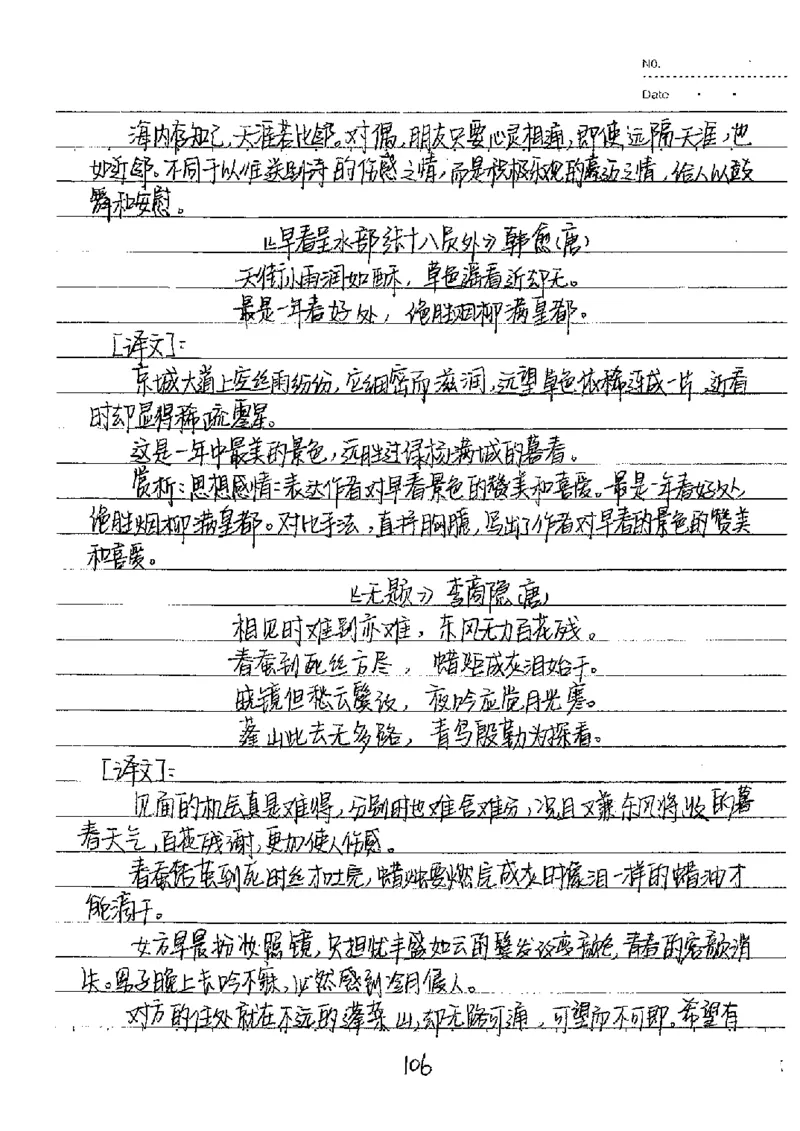 No.
Date
海内存知己,天涯若比邻。对偶,朋友只要心灵相通,即使远隔天涯,也
如近邻。不同于以往送别诗的伤感之情,而是积极乐观的豪迈之情,给人以鼓
舞和安慰。
《早春呈水部张十八员外》韩愈(唐)
天街小雨润如酥,草色遥看近却无。
最是一年春好处,绝胜烟柳满皇都。
[译文]:
京城大道上空丝雨纷纷,应细密而滋润,远望草色依稀连成一片,近看
时却显得稀疏零星。
这是一年中最美的景色,远胜过绿杨满城的暮春。
赏析:思想感情:表达作者对早春景色的赞美和喜爱。最是一年春好处,
绝胜烟柳满皇都。对比手法,直抒胸臆,写出了作者对早春的景色的赞美
和喜爱。
《无题》李商隐(唐)
相见时难别亦难,东风无力百花残。
春蚕到死丝方尽,蜡炬成灰泪始干。
晓镜但愁云鬓改,夜吟应觉月光寒。
蓬山此去无多路,青鸟殷勤为探看。
[译文]:
见面的机会真是难得,分别时也难舍难分,况且又兼东风将收的暮
春天气,百花残谢,更加使人伤感。
春蚕结茧到死时丝才吐完,蜡烛要燃完成灰时像泪一样的蜡油才
能滴干。
女方早晨扮妆照镜,只担忧丰盛如云的鬓发改变颜色,青春的容颜消
失。男子晚上长吟不寐,必然感到冷月侵人。
对方的住处就在不远的蓬莱山,却无路可通,可望而不可即。希望有
106